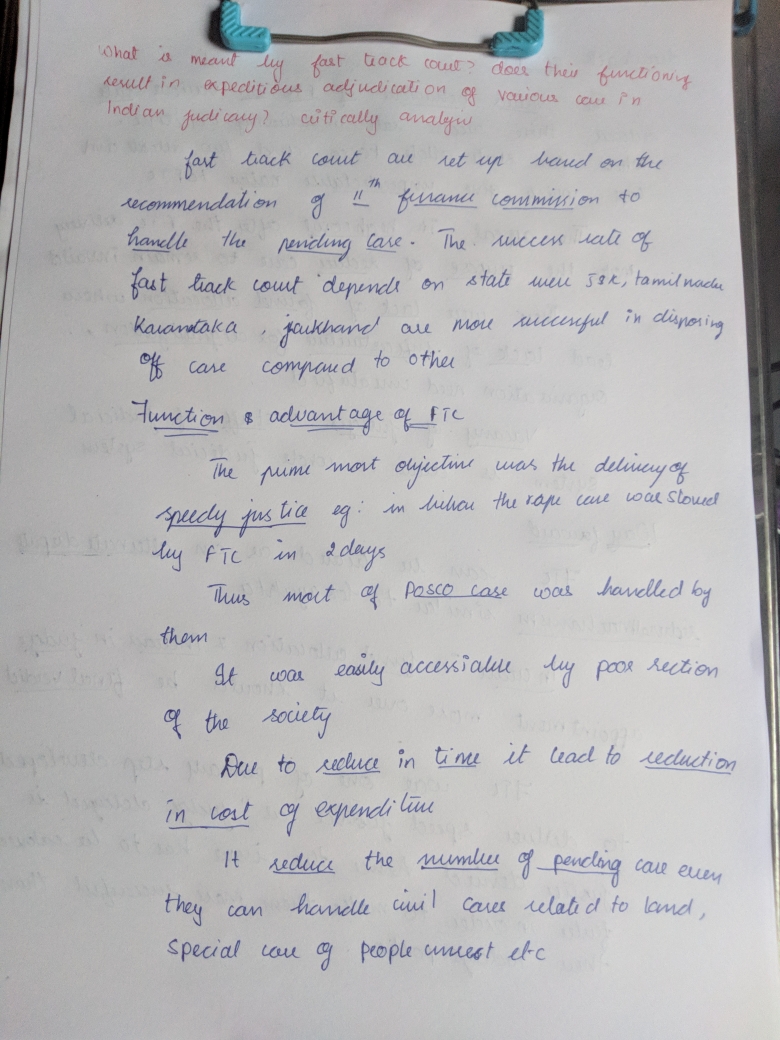 What is meant by fast track court? does their functioning
result in expeditious adjudication of various case in
Indian judicary? critically analyse
fast track court are set up based on the
recommendation of 11th finance commission to
handle the pending case. The success rate of
fast track court depends on state were J&K, tamilnadu
Karanataka, jarkhand are more successful in disposing
off case compared to other
Function & advantage of FTC
The prime most objective was the delivery of
speedy justice eg: in bihar the rape case was
by FTC in 2 days
Thus most of Posco case was handled by
them
It was easily accessiable by poor section
of the society
Due to reduce in time it lead to reduction
in cost of expenditure
It reduce the number of pending case even
they can handle civil cases related to land,
special case of people unrest etc